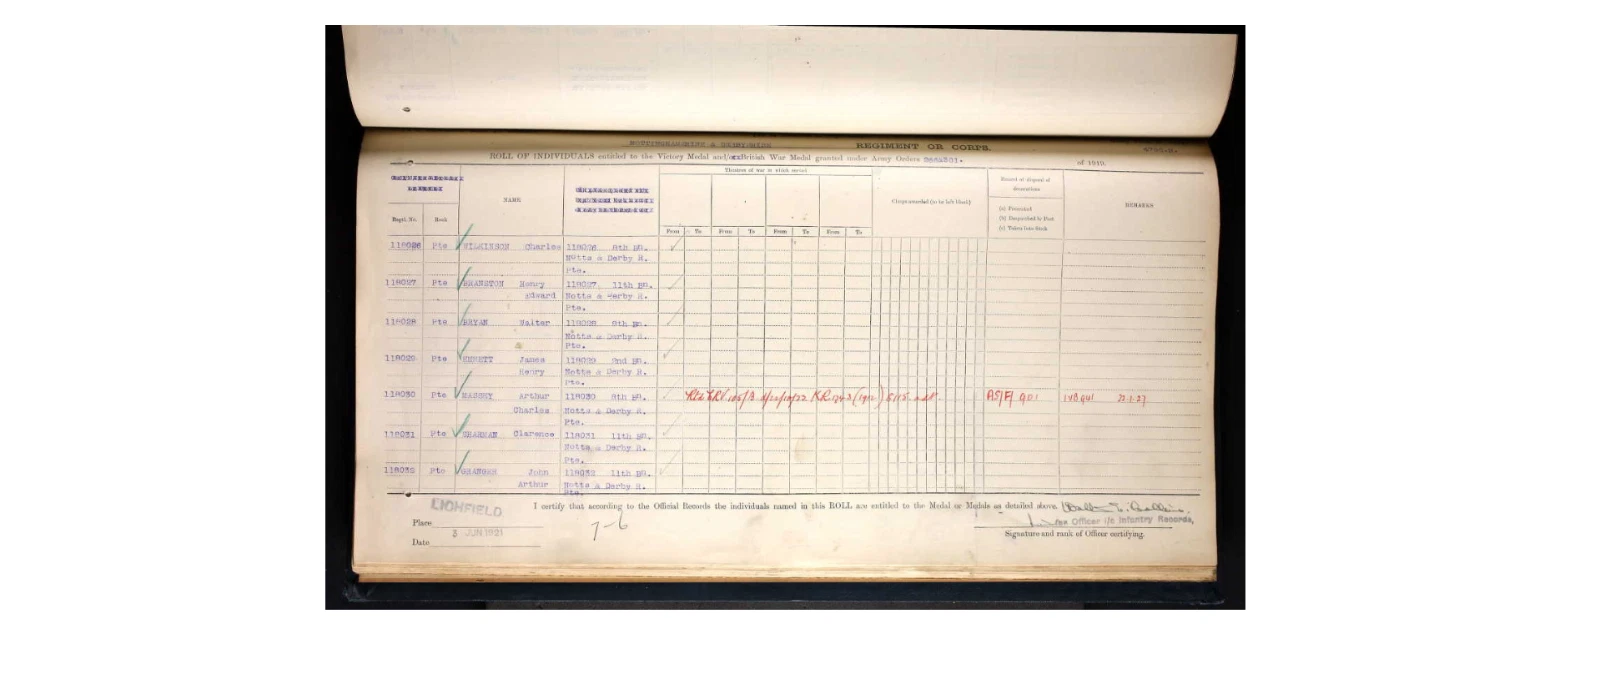 NOTTINGHAMSHIRE & DERBYSHIRE REGIMENT OR CORPS.
ROLL OF INDIVIDUALS entitled to the Victory Medal and/or British War Medal granted under Army Orders of 1919.
Theatres of war in which served
Regtl. No. Rank NAME Clasps awarded (to be left blank) Record of disposal of decorations REMARKS
(a) Presented
(b) Despatched by Post
(c) Taken into Stock
From To From To From To From To
118026 Pte WILKINSON Charles 118026 8th BN.
Notts & Derby R.
Pte.
118027 Pte BRANSTON Henry 118027 11th BN.
Edward Notts & Derby R.
Pte.
118028 Pte BRYAN Walter 118028 8th BN.
Notts & Derby R.
Pte.
118029 Pte EMMETT James 118029 2nd BN.
Henry Notts & Derby R.
Pte.
118030 Pte MASSEY Arthur 118030 8th BN. AS/F/ 901
Charles Notts & Derby R.
Pte.
118031 Pte SHARMAN Clarence 118031 11th BN.
Notts & Derby R.
Pte.
118032 Pte GRANGER John 118032 11th BN.
Arthur Notts & Derby R.
Pte.
I certify that according to the Official Records the individuals named in this ROLL are entitled to the Medal or Medals as detailed above
LICHFIELD
Place
Officer i/c Infantry Records,
3 JUN 1921
7-6
Signature and rank of Officer certifying.
Date